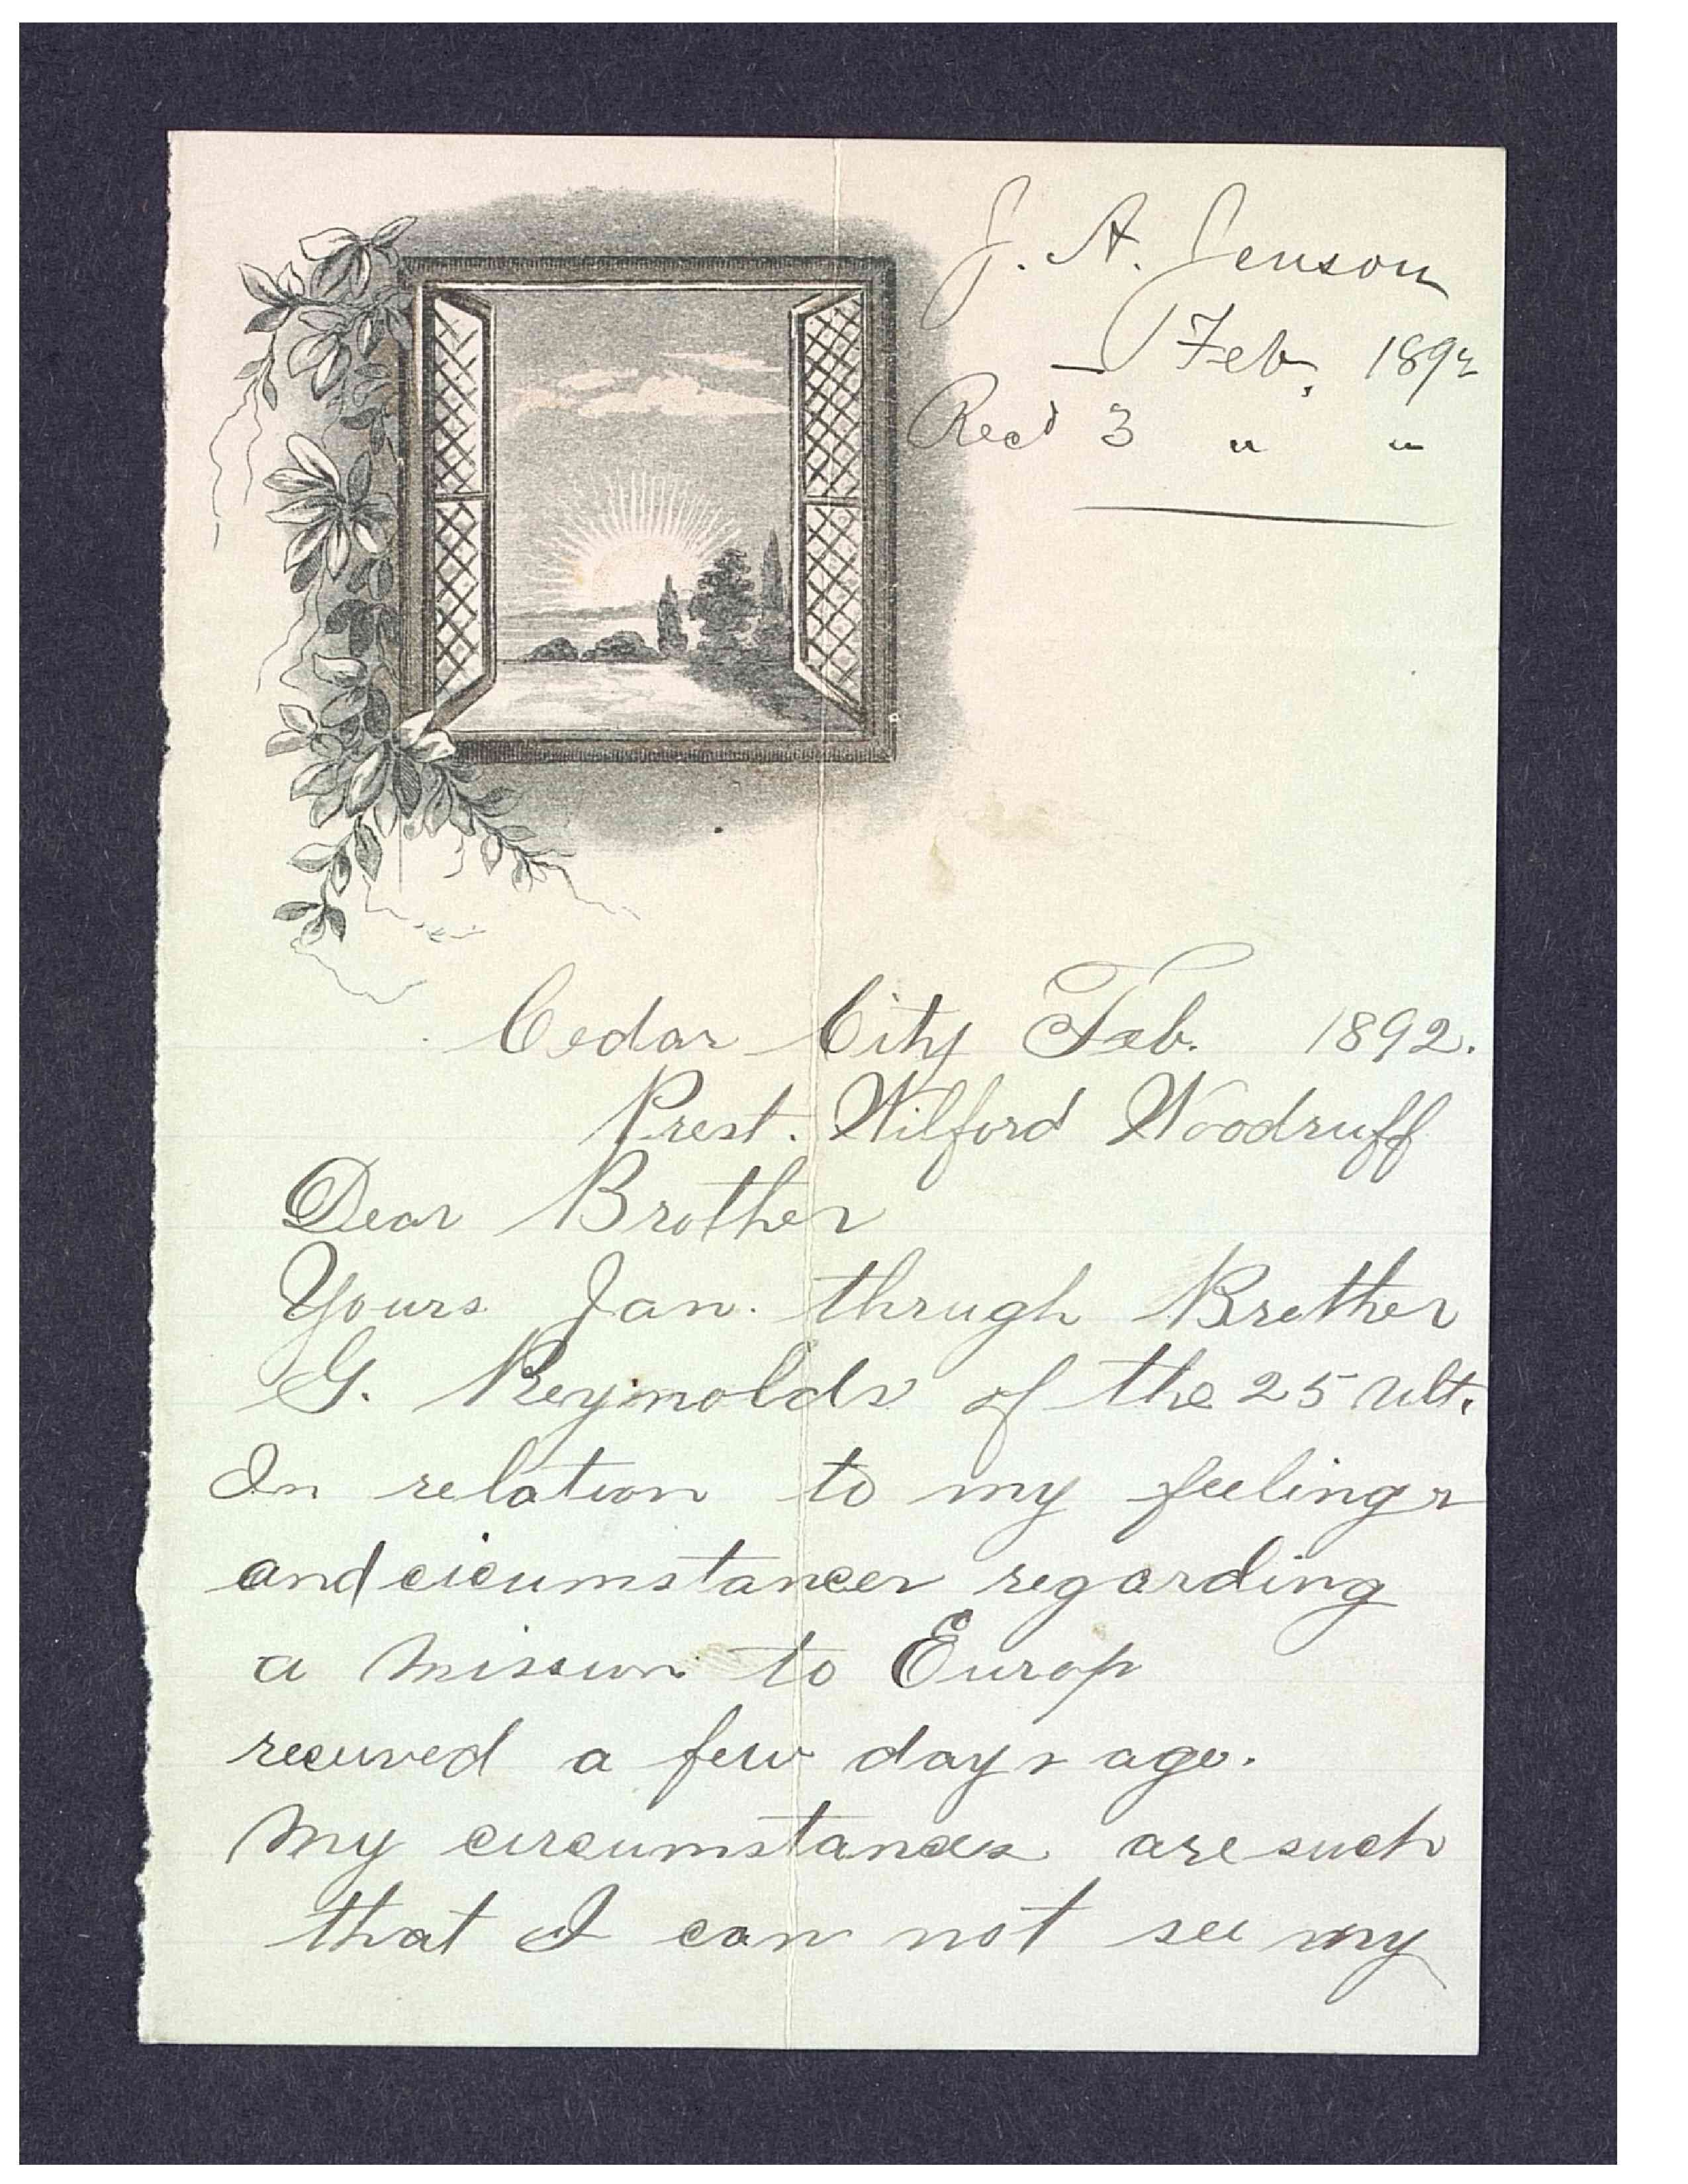 J. A. Jenson
— Feb. 1892
Recd 3 " "
Cedar City Feb. 1892.
Prest. Wilford Woodruff
Dear Brother
Yours Jan. thrugh Brother
G. Reynolds of the 25 ult.
In relation to my feelings
and cicumstances regarding
a mission to Europ
received a few days ago.
My circumstances are such
that I can not see my